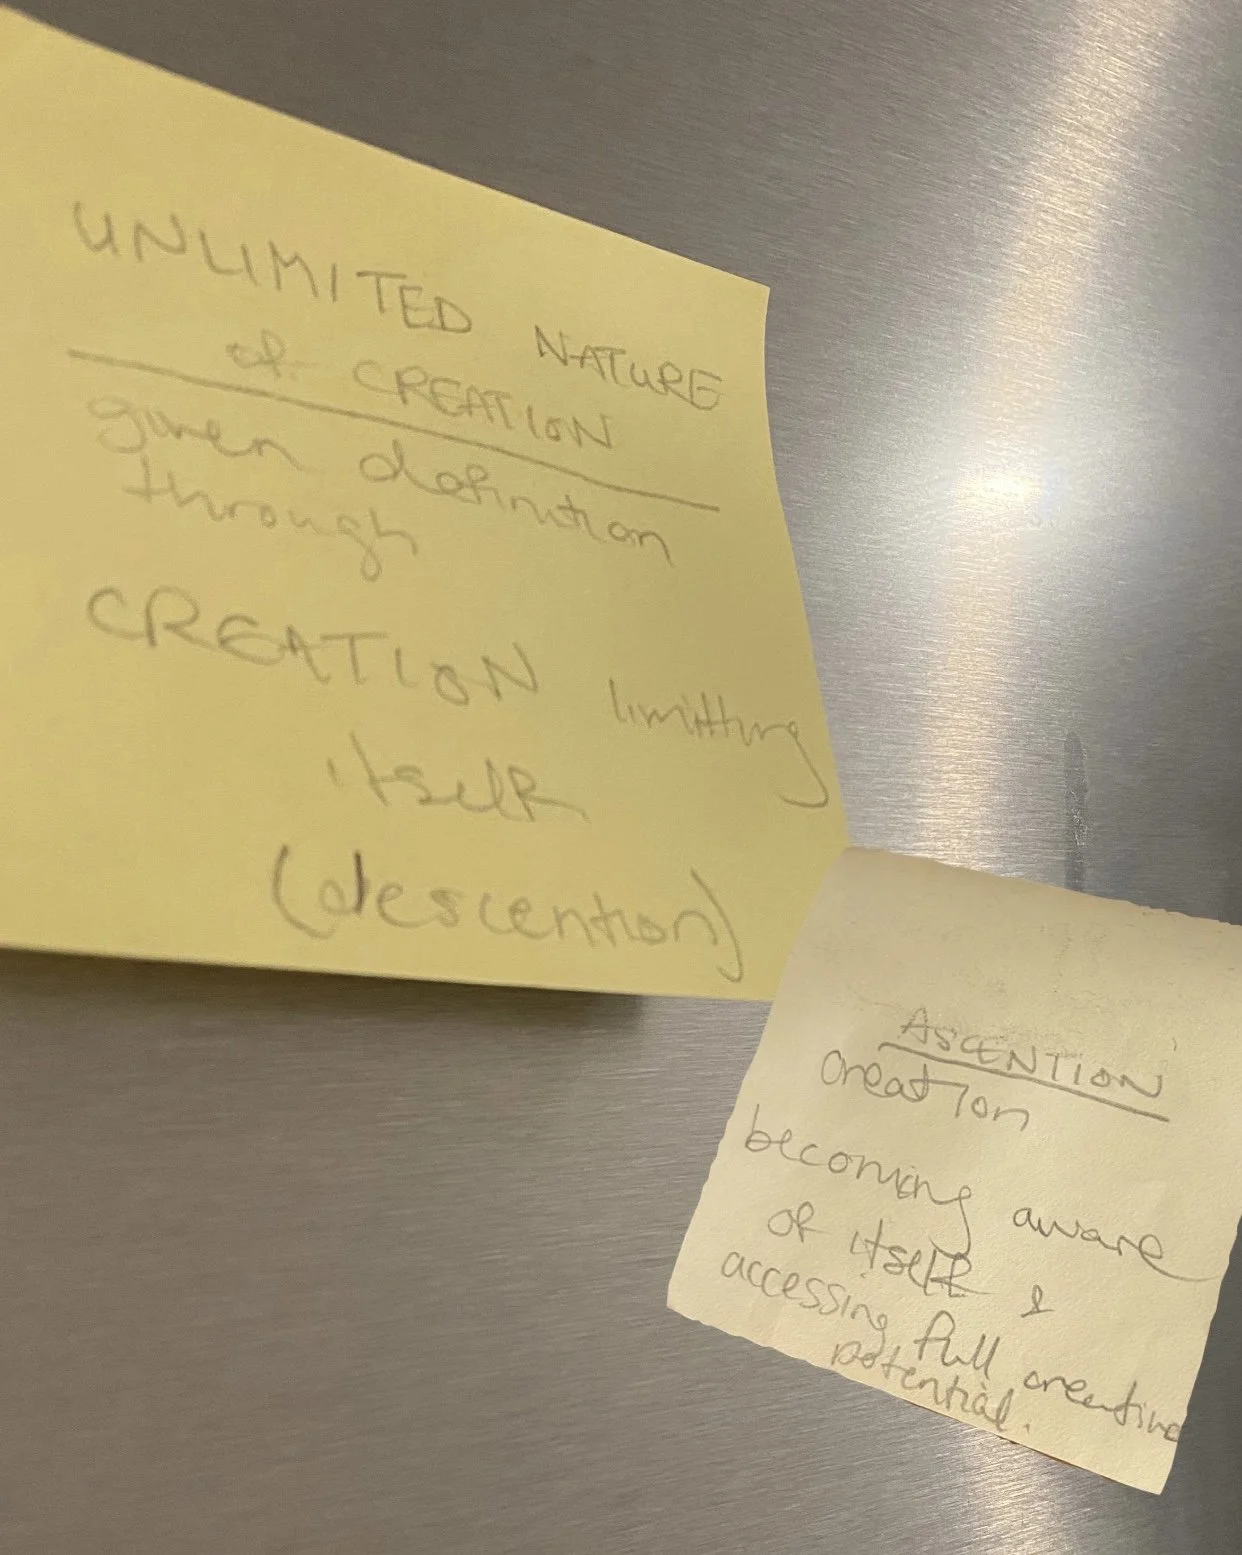 UNLIMITED NATURE
of CREATION
given definition
through
CREATION limitting
itself
(descention)
ASCENTION
creation
becoming aware
of itself &
accessing full creative
potential.